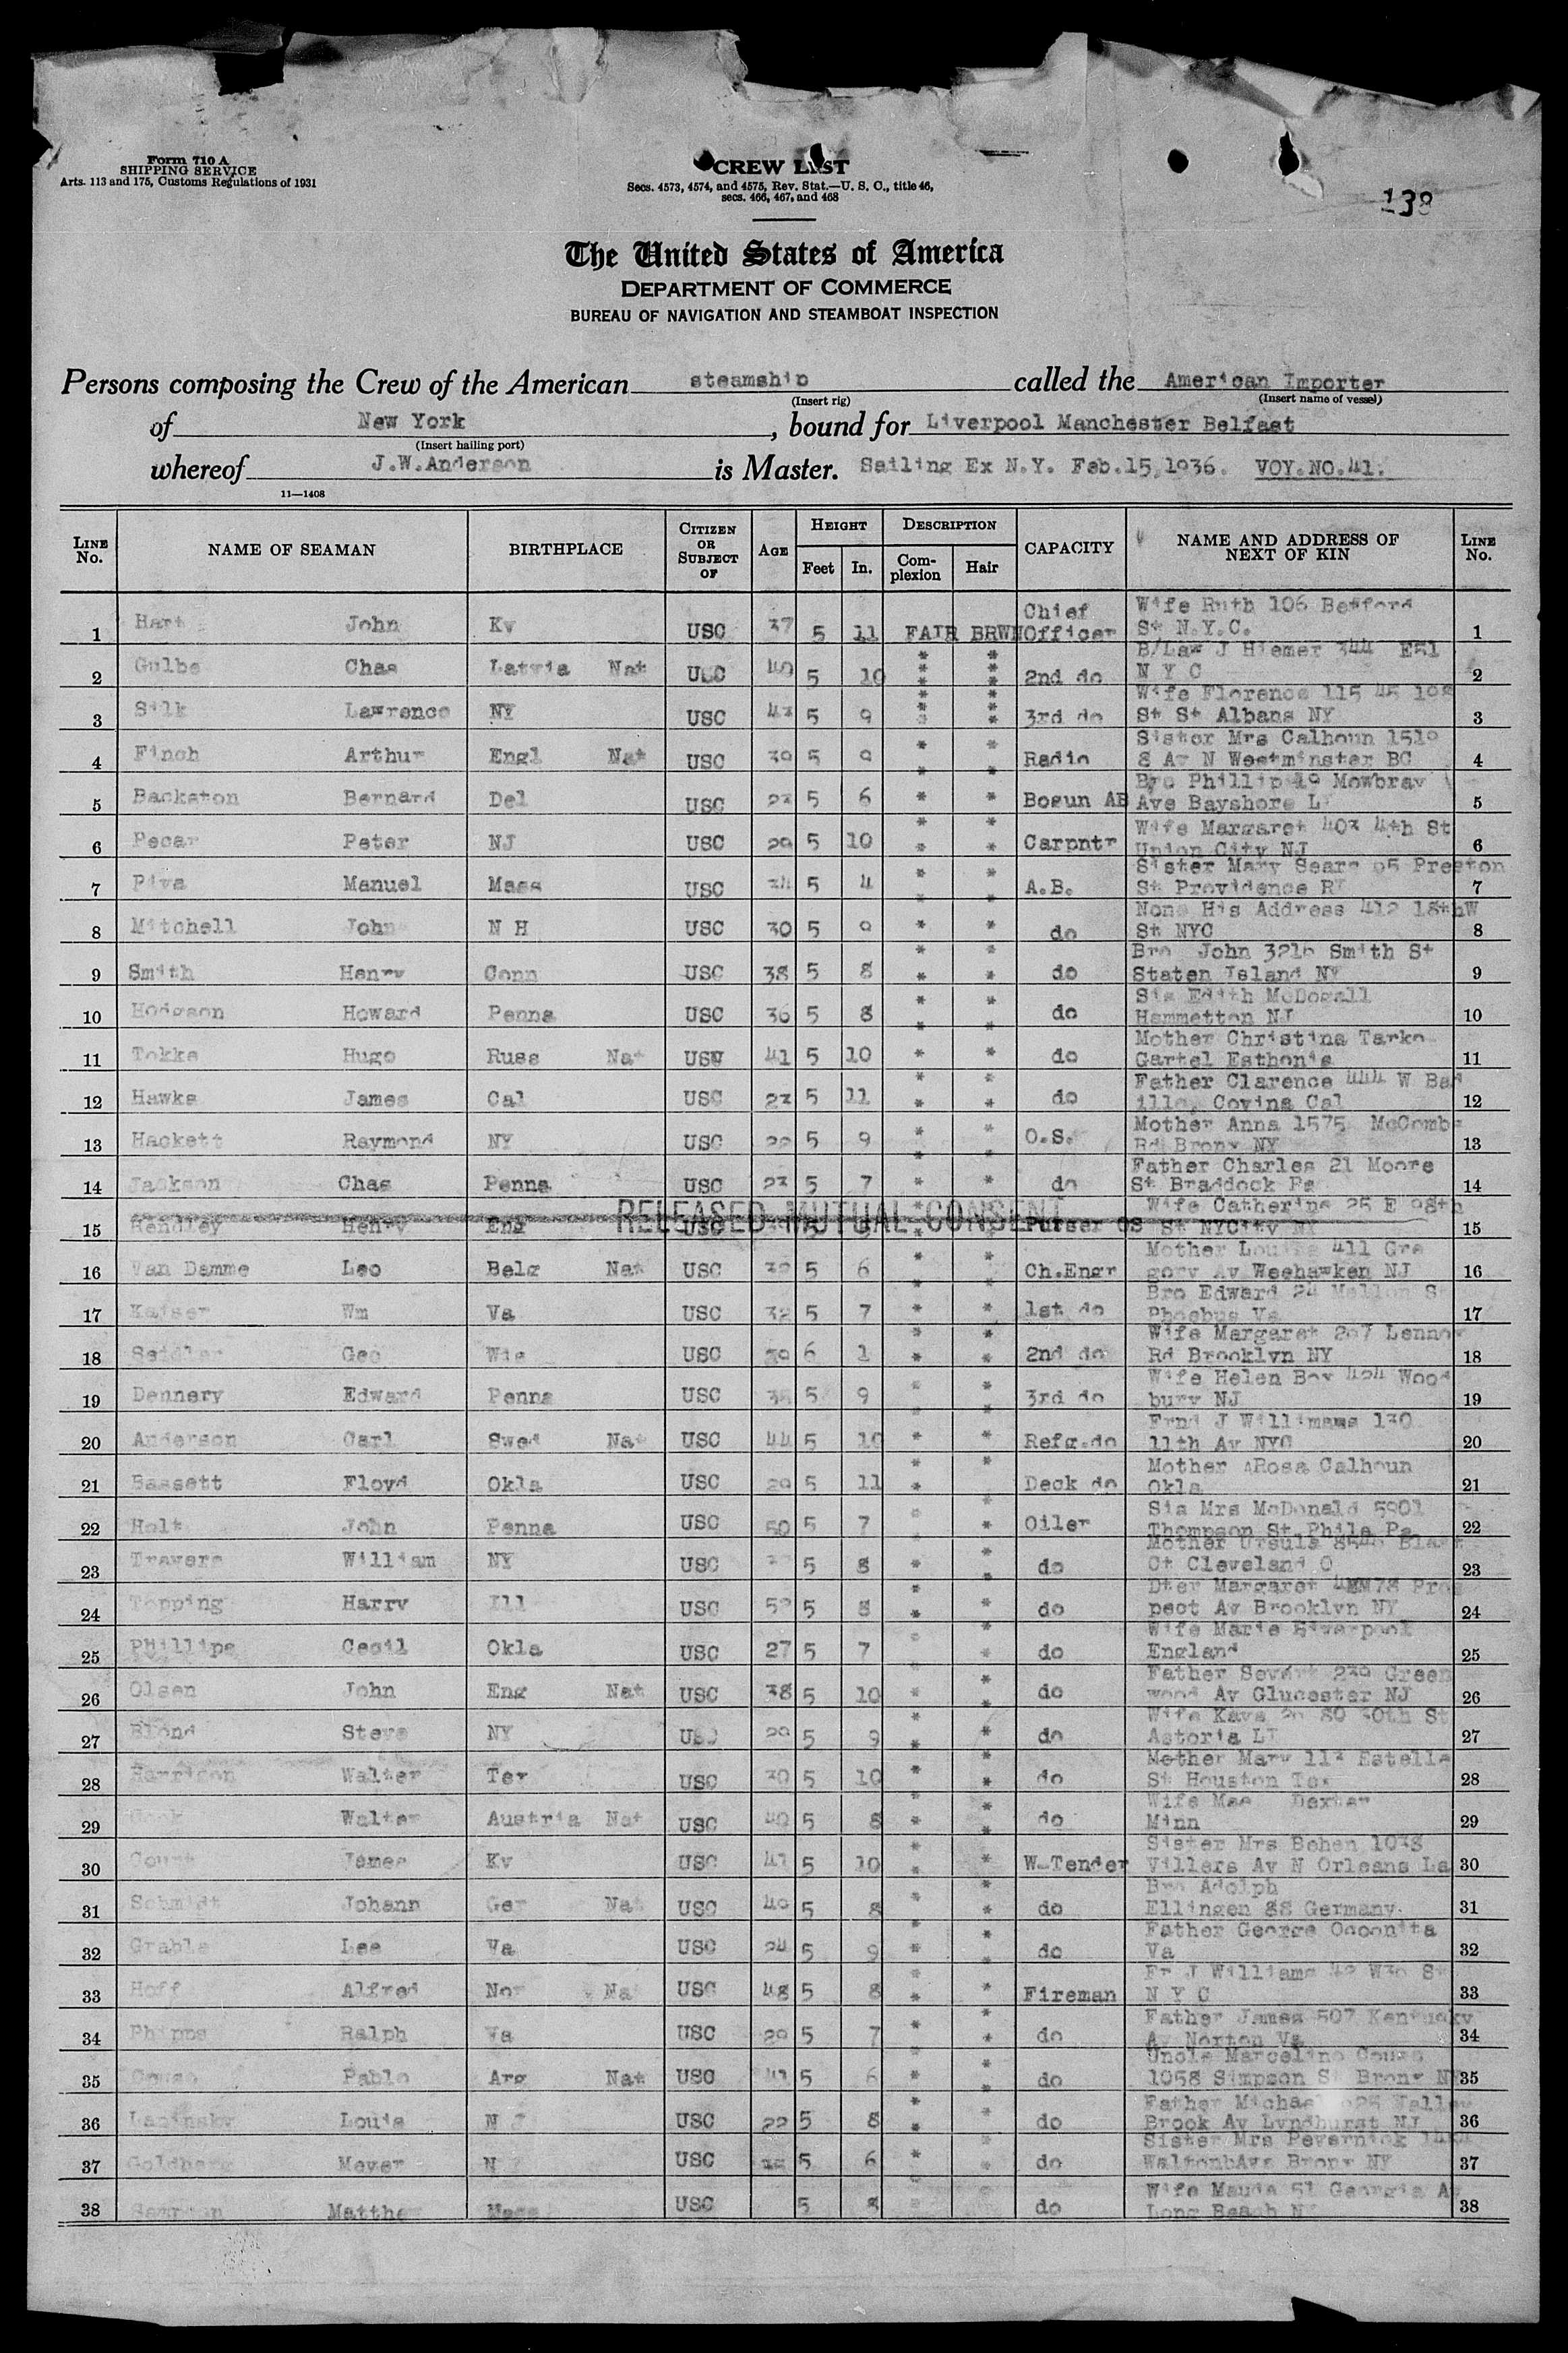 Form 710 A
SHIPPING SERVICE
Arts. 113 and 175, Customs Regulations of 1931
CREW LIST
Secs. 4573, 4574, and 4575, Rev. Stat.—U. S. C., title 46,
secs. 466, 467, and 468
138
The United States of America
DEPARTMENT OF COMMERCE
BUREAU OF NAVIGATION AND STEAMBOAT INSPECTION
Persons composing the Crew of the American steamship called the American Importer
(Insert rig) (Insert name of vessel)
of New York, bound for Liverpool Manchester Belfast
(Insert hailing port)
whereof J.W.Anderson is Master. Sailing Ex N.Y. Feb.15,1936. VOY.NO.41.
11—1408
LINE No. NAME OF SEAMAN BIRTHPLACE CITIZEN OR SUBJECT OF AGE HEIGHT Feet In. DESCRIPTION Complexion Hair CAPACITY NAME AND ADDRESS OF NEXT OF KIN LINE No.
1 Hart John Ky USC 37 5 11 FAIR BRWN Chief Officer Wife Ruth 106 Bedford St N.Y.C. 1
2 Gulbs Chas Latvia Nat USC 49 5 10 " " 2nd do B/Law J Hiemer 344 E51 N Y C 2
3 Silk Lawrence NY USC 43 5 9 " " 3rd do Wife Florence 115 45 St St Albans NY 3
4 Finch Arthur Engl Nat USC 39 5 9 " " Radio Sister Mrs Calhoun 1519 8 Av N Westminster BC 4
5 Backston Bernard Del USC 23 5 6 " " Bosun AB Bro Phillip 49 Mowbray Ave Bayshore L 5
6 Pecar Peter NJ USC 29 5 10 " " Carpntr Wife Margaret 403 4th St Union City NJ 6
7 Piva Manuel Mass USC 34 5 4 " " A.B. Sister Mary Sears 95 Preston St Providence RI 7
8 Mitchell John N H USC 30 5 9 " " do None His Address 412 18thW St NYC 8
9 Smith Henry Conn USC 38 5 8 " " do Bro John 3216 Smith St Staten Island NY 9
10 Hodgson Howard Penna USC 36 5 8 " " do Sis Edith McDogall Hammetton NJ 10
11 Tokke Hugo Russ Nat USW 41 5 10 " " do Mother Christina Tarko Gartel Esthonia 11
12 Hawks James Cal USC 23 5 11 " " do Father Clarence 444 W Bad illo, Covina Cal 12
13 Hackett Raymond NY USC 22 5 9 " " O.S. Mother Anna 1575 McCombs Rd Bronx NY 13
14 Jackson Chas Penna USC 23 5 7 " " do Father Charles 21 Moore St Braddock Pa 14
RELEASED MUTUAL CONSENT
15 Hendley Henry Eng USC 5 " " Purser os Wife Catherine 25 E 98th St NYCity NY 15
16 Van Damme Leo Belg Nat USC 39 5 6 " " Ch.Engr Mother Louise 411 Gre gory Av Weehawken NJ 16
17 Kaiser Wm Va USC 32 5 7 " " 1st do Bro Edward 24 Mellon St Phoebus Va 17
18 Seidler Geo Wis USC 39 6 1 " " 2nd do Wife Margaret 207 Lennox Rd Brooklyn NY 18
19 Dennery Edward Penna USC 35 5 9 " " 3rd do Wife Helen Box 424 Wood bury NJ 19
20 Anderson Carl Swed Nat USC 44 5 10 " " Refg.do Frnd J Willimams 130 11th Av NYC 20
21 Bassett Floyd Okla USC 29 5 11 " " Deck do Mother Rosa Calhoun Okla 21
22 Holt John Penna USC 50 5 7 " " Oiler Sis Mrs McDonald 5901 Thompson St Phila Pa 22
23 Travers William NY USC 5 8 " " do Mother Ursula Ct Cleveland O 23
24 Topping Harry Ill USC 52 5 8 " " do Dter Margaret Pros pect Av Brooklyn NY 24
25 Phillips Cecil Okla USC 27 5 7 " " do Wife Marie Liverpool England 25
26 Olsen John Eng Nat USC 38 5 10 " " do Father Severt 239 Green wood Av Glucester NJ 26
27 Blond Steve NY USC 29 5 9 " " do Wife Kaye 30th St Astoria LI 27
28 Harrison Walter Tex USC 39 5 10 " " do Mother Mary 113 Estelle St Houston Tex 28
29 Walter Austria Nat USC 49 5 8 " " do Wife Mae Dexter Minn 29
30 Count James Ky USC 41 5 10 " " W-Tender Sister Mrs Behen 1038 Villers Av N Orleans La 30
31 Schmidt Johann Ger Nat USC 49 5 8 " " do Bro Adolph Ellingen 88 Germany. 31
32 Grable Lee Va USC 24 5 9 " " do Father George Occonita Va 32
33 Hoff Alfred Nor Na USC 48 5 8 " " Fireman Fr J Williams 42 W30 St N Y C 33
34 Phipps Ralph Va USC 29 5 7 " " do Father James 507 Kentucky Av Norton Va 34
35 Couso Pablo Arg Nat USC 41 5 6 " " do Uncle Marcelino Couso 1058 Simpson St Bronx NY 35
36 Lacinsky Louis N J USC 22 5 8 " " do Father Michael Valley Brook Av Lyndhurst NJ 36
37 Goldberg Meyer N USC 5 6 " " do Sister Mrs Pevernick WaltonbAve Bronx NY 37
38 Matthew Mass USC 5 8 " " do Wife Maude 51 Georgia Av Long Beach N 38